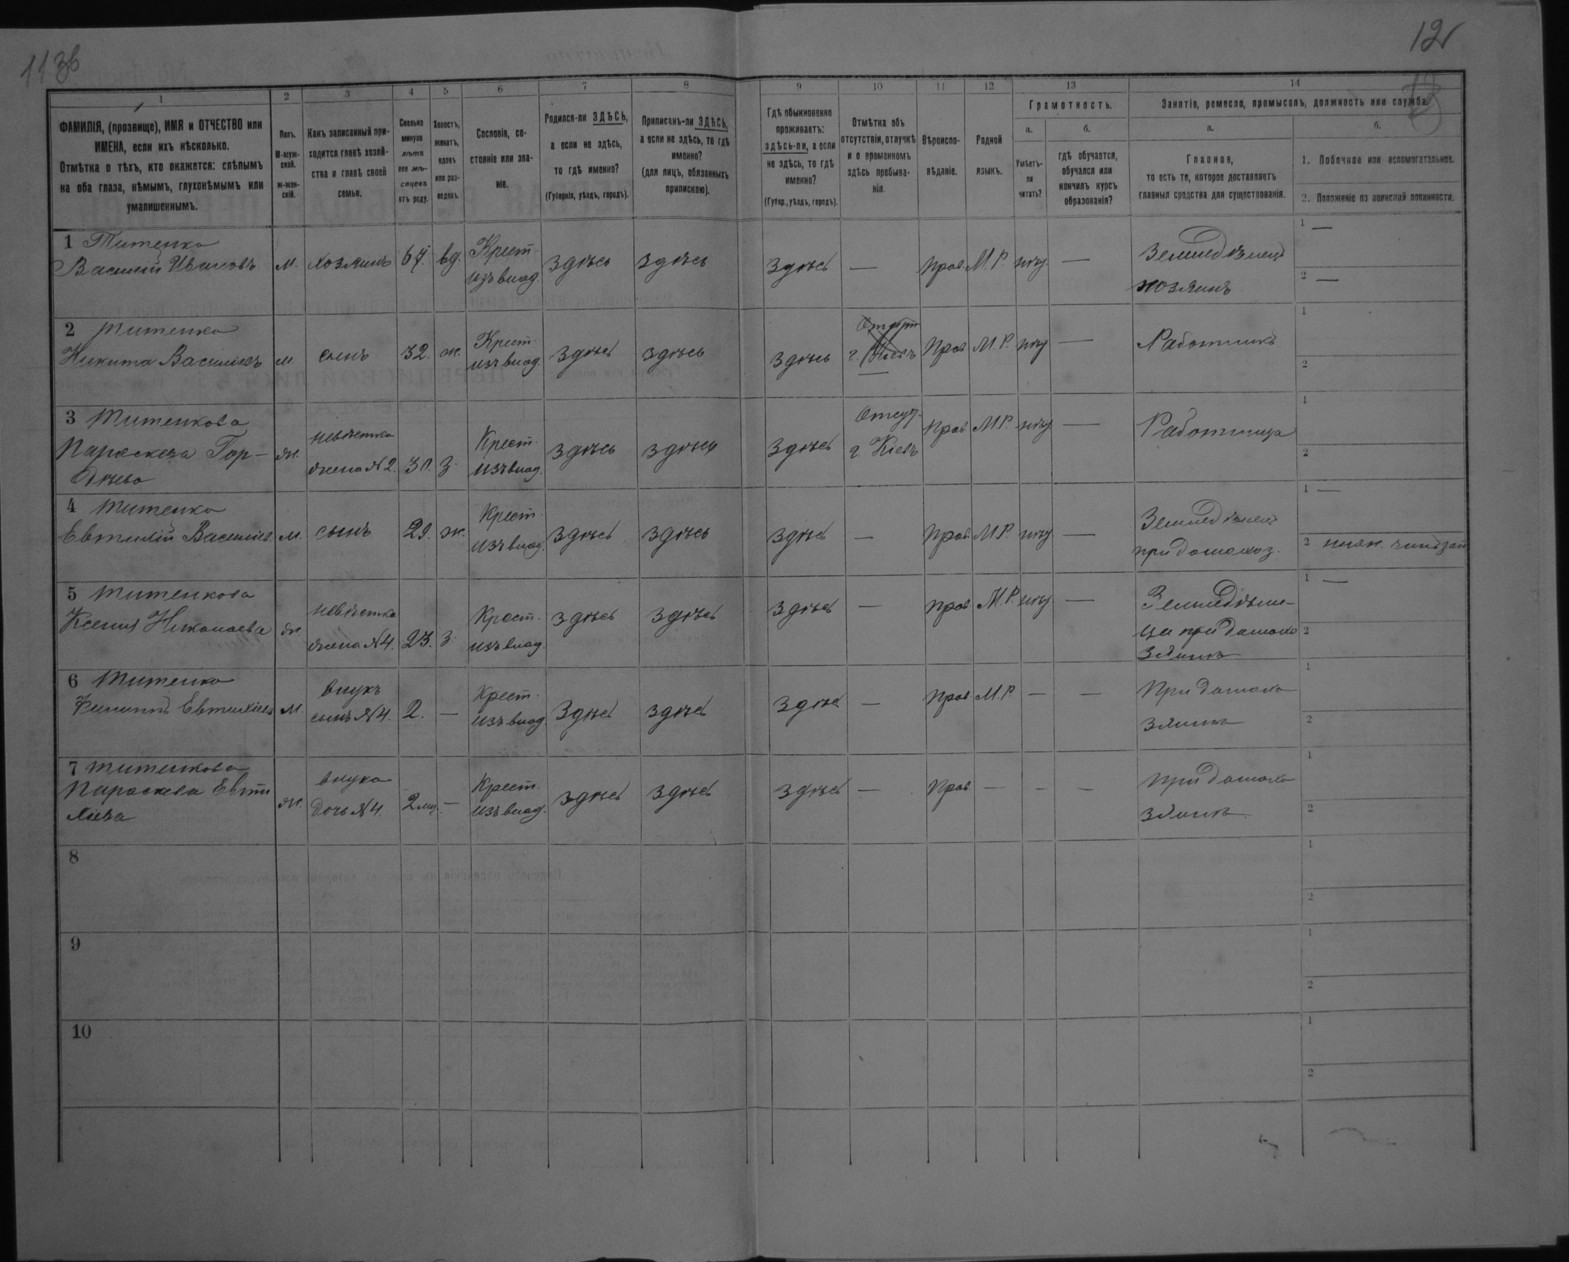 12
1 2 3 4 5 6 7 8 9 10 11 12 13 14
ФАМИЛІЯ, (прозвище), ИМЯ и ОТЧЕСТВО или
ИМЕНА, если ихъ нѣсколько.
Отмѣтка о тѣхъ, кто окажется: слѣпымъ
на оба глаза, нѣмымъ, глухонѣмымъ или
умалишеннымъ.
Полъ.
М-муж-
ской.
ж-жен-
скій.
Какъ записанный при-
ходится главѣ хозяй-
ства и главѣ своей
семьи.
Сколько
минуло
лѣтъ
или мѣ-
сяцевъ
отъ роду.
Холостъ,
женатъ,
вдовъ
или раз-
веденъ.
Сословіе, со-
стояніе или зва-
ніе.
Родился-ли ЗДѢСЬ,
а если не здѣсь,
то гдѣ именно?
(Губернія, уѣздъ, городъ).
Приписанъ-ли ЗДѢСЬ,
а если не здѣсь, то гдѣ
именно?
(для лицъ, обязанныхъ
припискою).
Гдѣ обыкновенно
проживаетъ:
здѣсь-ли, а если
не здѣсь, то гдѣ
именно?
(Губер., уѣздъ, городъ).
Отмѣтка объ
отсутствіи, отлучкѣ
и о временномъ
здѣсь пребыва-
ніи.
Вѣроиспо-
вѣданіе.
Родной
языкъ.
Грамотность.
а.
Умѣетъ-
ли
читать?
б.
гдѣ обучается,
обучался или
кончилъ курсъ
образованія?
Занятіе, ремесло, промыселъ, должность или служба.
а.
Главное,
то есть то, которое доставляетъ
главныя средства для существованія.
б.
1. Побочное или вспомогательное.
2. Положеніе по воинской повинности.
1 Титенко
Василій Ивановъ м. хозяинъ вд. Крест. изъ влад. здѣсь здѣсь здѣсь — Прав. М.Р. нѣт — Земледѣлецъ хозяинъ
1 —
2 —
2 Титенко
Никита Васильевъ м. сынъ 32. ж. Крест. изъ влад. здѣсь здѣсь здѣсь г. Кіевъ Прав М.Р. нѣт — Работникъ
1
2
3 Титенкова
Параскева Гор-
дѣева ж. невѣстка жена №2. 30. з. Крест. изъ влад. здѣсь здѣсь здѣсь Отсут. г. Кіевъ Прав М.Р. нѣт — Работница
1
2
4 Титенко
Евтихій Васильев м. сынъ 29. ж. Крест. изъ влад. здѣсь здѣсь здѣсь — Прав М.Р. нѣт — Земледѣлец при домохоз.
1 —
2 нижн. чинъ
5 Титенкова
Ксенія Николаева ж. невѣстка жена №4. 23. з. Крест. изъ влад. здѣсь здѣсь здѣсь — Прав М.Р. нѣт — Земледѣли-
ца при домохо
зяинѣ
1 —
2
6 Титенко
Евтихіев м. внукъ сынъ №4. 2. — Крест. изъ влад. здѣсь здѣсь здѣсь — Прав М.Р. — — При домохо
зяинѣ
1
2
7 Титенкова
Параскева Евти
хіева ж. внука дочь №4. 2 мѣс. — Крест. изъ влад. здѣсь здѣсь здѣсь — Прав — — — При домохо
зяинѣ
1
2
8
1
2
9
1
2
10
1
2